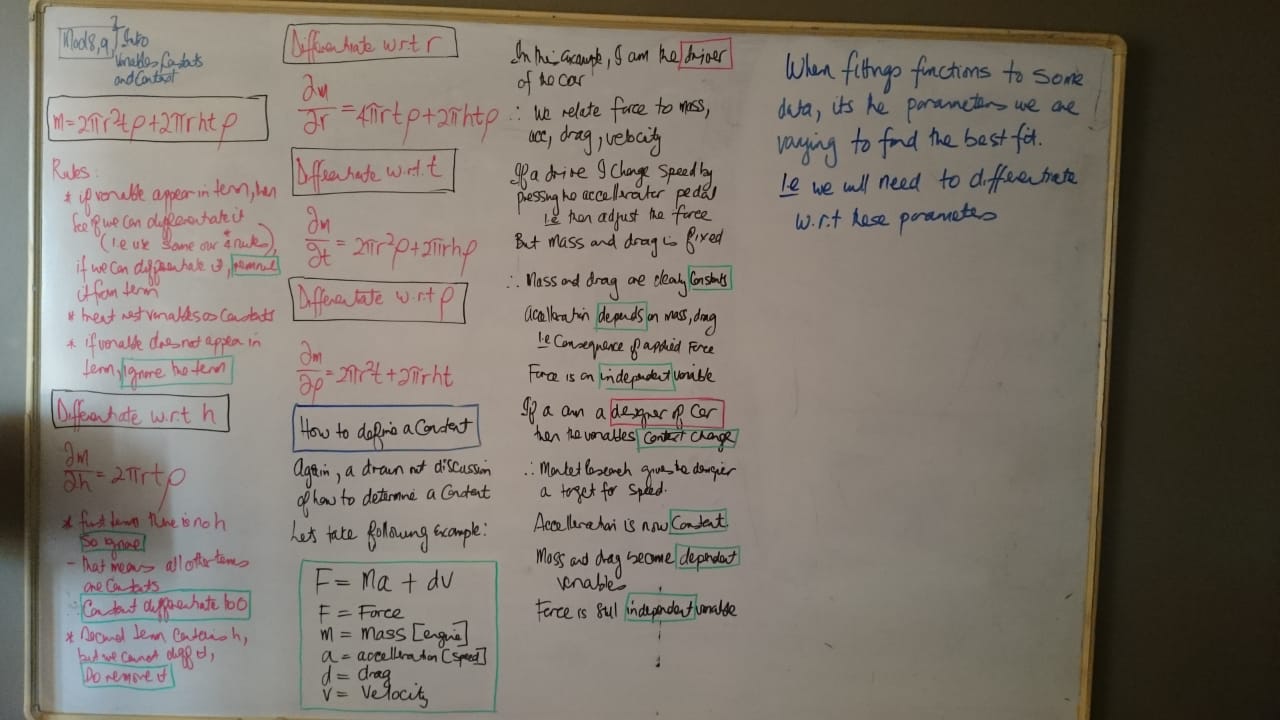 Mod8,q2 Into
Variables Constants
and Context
m=2πr²tρ+2πrhtρ
Rules:
* if variable appear in term, then
see if we can differentiate it
(i.e use some our 4 rules),
if we can differentiate it, remove
it from term
* treat rest variables as Constants
* if variable does not appear in
term, ignore the term
Differentiate w.r.t h
∂m/∂h = 2πrtρ
* first term there is no h
so ignore
- that means all other terms
are Constants
∴ Constant differentiate to 0
* Second term contains h,
but we cannot diff it,
So remove it
Differentiate w.r.t r
∂m/∂r = 4πrtρ+2πhtρ
Differentiate w.r.t. t
∂m/∂t = 2πr²ρ+2πrhρ
Differentiate w.r.t ρ
∂m/∂ρ = 2πr²t+2πrht
How to define a Constant
Again, a drawn out discussion
of how to determine a Constant
Let's take following Example:
F = ma + dv
F = Force
m = Mass [engine]
a = accelleration [speed]
d = drag
v = Velocity
In this example, I am the driver
of the car
∴ we relate force to mass,
acc, drag, velocity
If a drive I change speed by
pressing the accellerater pedal
i.e then adjust the force
But mass and drag is fixed
∴ Mass and drag are clearly Constants
Accelleration depends on mass, drag
i.e Consequence of applied Force
Force is an independent variable
If a am a designer of Car
then the variables Context Change
∴ Market Research gives the designer
a target for speed.
Accelleration is now Constant
Mass and drag become dependent
variables
Force is still independent variable
When fittings functions to some
data, its the parameters we are
varying to find the best fit.
i.e we will need to differentiate
w.r.t these parameters